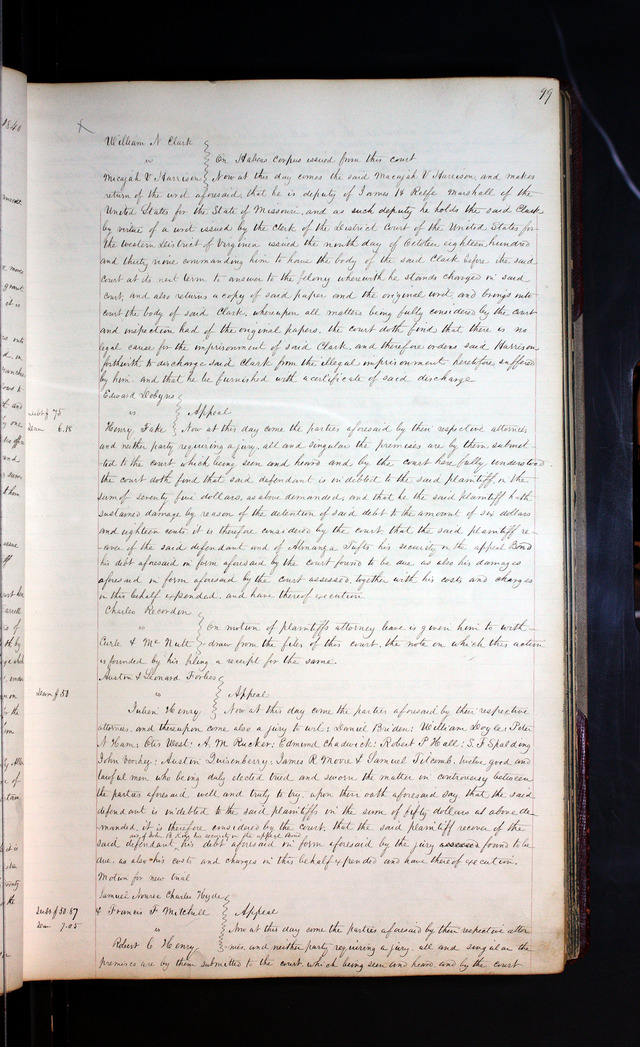 99
William N Clark
vs } On Habeas corpus issued from this court
Micajah V Harrison } Now at this day comes the said Macajah V Harrison, and makes
return of the writ aforesaid, that he is deputy of James H Relfe Marshall of the
United States for the State of Missouri, and as such deputy he holds the said Clark
by virtue of a writ issued by the clerk of the District Court of the United States for
the western District of Virginia issued the month day of October eighteen hundred
and thirty nine commanding him to have the body of the said Clark before the said
court at its next term to answer to the felony wherewith he stands charged in said
court, and also returns a copy of said paper and the original writ, and brings into
court the body of said Clark. whereupon all matters being fully considered by the court
and inspection had of the original papers. the court doth find that there is no
legal cause for the imprisonment of said Clark, and therefore orders said Harrison
forthwith to discharge said Clark from the illegal imprisonment heretofore suffered
by him. and that he be furnished with a certificate of said discharge
Edward Dobyns
Debt $ 75 vs } Appeal
Dam 6.18 Henry Fake } Now at this day come the parties aforesaid by their respective attornies
and neither party requiring a jury, all and singular the premises are by them submit-
-ted to the court, which being seen and heard and by the court here fully understood
the court doth find that said defendant is indebted to the said plaintiff in the
sum of seventy five dollars, as above demanded, and that he the said plaintiff hath
sustained damage by reason of the detention of said debt to the amount of six dollars
and eighteen cents. it is therefore considered by the court, that the said plaintiff re-
-cover of the said defendant and of Almanza Tufts his security in the appeal Bond
his debt aforesaid in form aforesaid by the court found to be due as also his damages
aforesaid in form aforesaid by the court assessed, together with his costs and charges
in this behalf expended. and have thereof execution
Charles Recordon
vs } On motion of plaintiffs attorney leave is given him to with-
Curle & McNutt } -draw from the files of this court, the note on which this action
is founded by his filing a receipt for the same.
Auston & Leonard Forbes
Dam $ 50 vs } Appeal
Julien Henry } Now at this day come the parties aforesaid by their respective
attornies, and thereupon come also a jury to wit: Daniel Briden: William Doyle: Peter
N Ham: Otis West: A. M. Rucker: Edmund Chadwick: Robert P Hall: S. F Spalding
John Voohy: Auston Quisenberry: James R Moore & Samuel Titcomb. twelve good and
lawful men who being duly elected tried and sworn the matter in controversy between
the parties aforesaid well and truly to try, upon their oath aforesaid say, that the said
defendant is indebted to the said plaintiffs in the sum of fifty dollars as above de-
-manded, it is therefore considered by the court, that the said plaintiff recover of the
his security in the appeal bond
said defendant, his debt aforesaid in form aforesaid by the jury assessed found to be
due. as also his costs and charges in this behalf expended and have thereof execution.
Motion for new trial
Samuel Nourse Charles Hyde
Debt $ 50.87 & Francis F Mitchell } Appeal
Dam 7.05 vs } Now at this day come the parties aforesaid by their respective attor
Robert C Henry } -nies, and neither party requiring a jury. all and singular the
premises are by them submitted to the court. which being seen and heard, and by the court